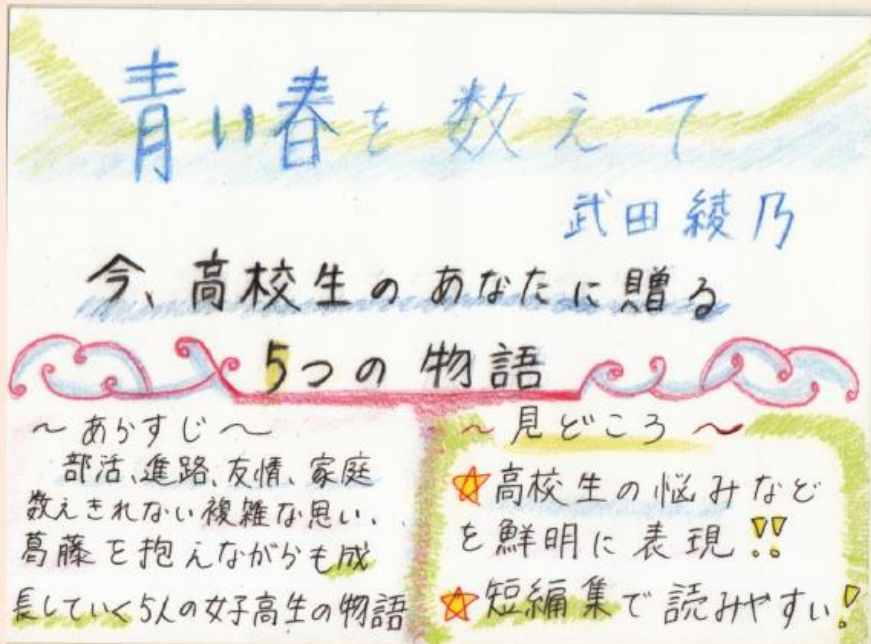 青い春を数えて
武田綾乃
今、高校生のあなたに贈る
5つの物語
~あらすじ~
部活、進路、友情、家庭
数えきれない複雑な思い、
葛藤を抱えながらも成
長していく5人の女子高生の物語
~見どころ~
☆高校生の悩みなど
を鮮明に表現!!
☆短編集で読みやすい!